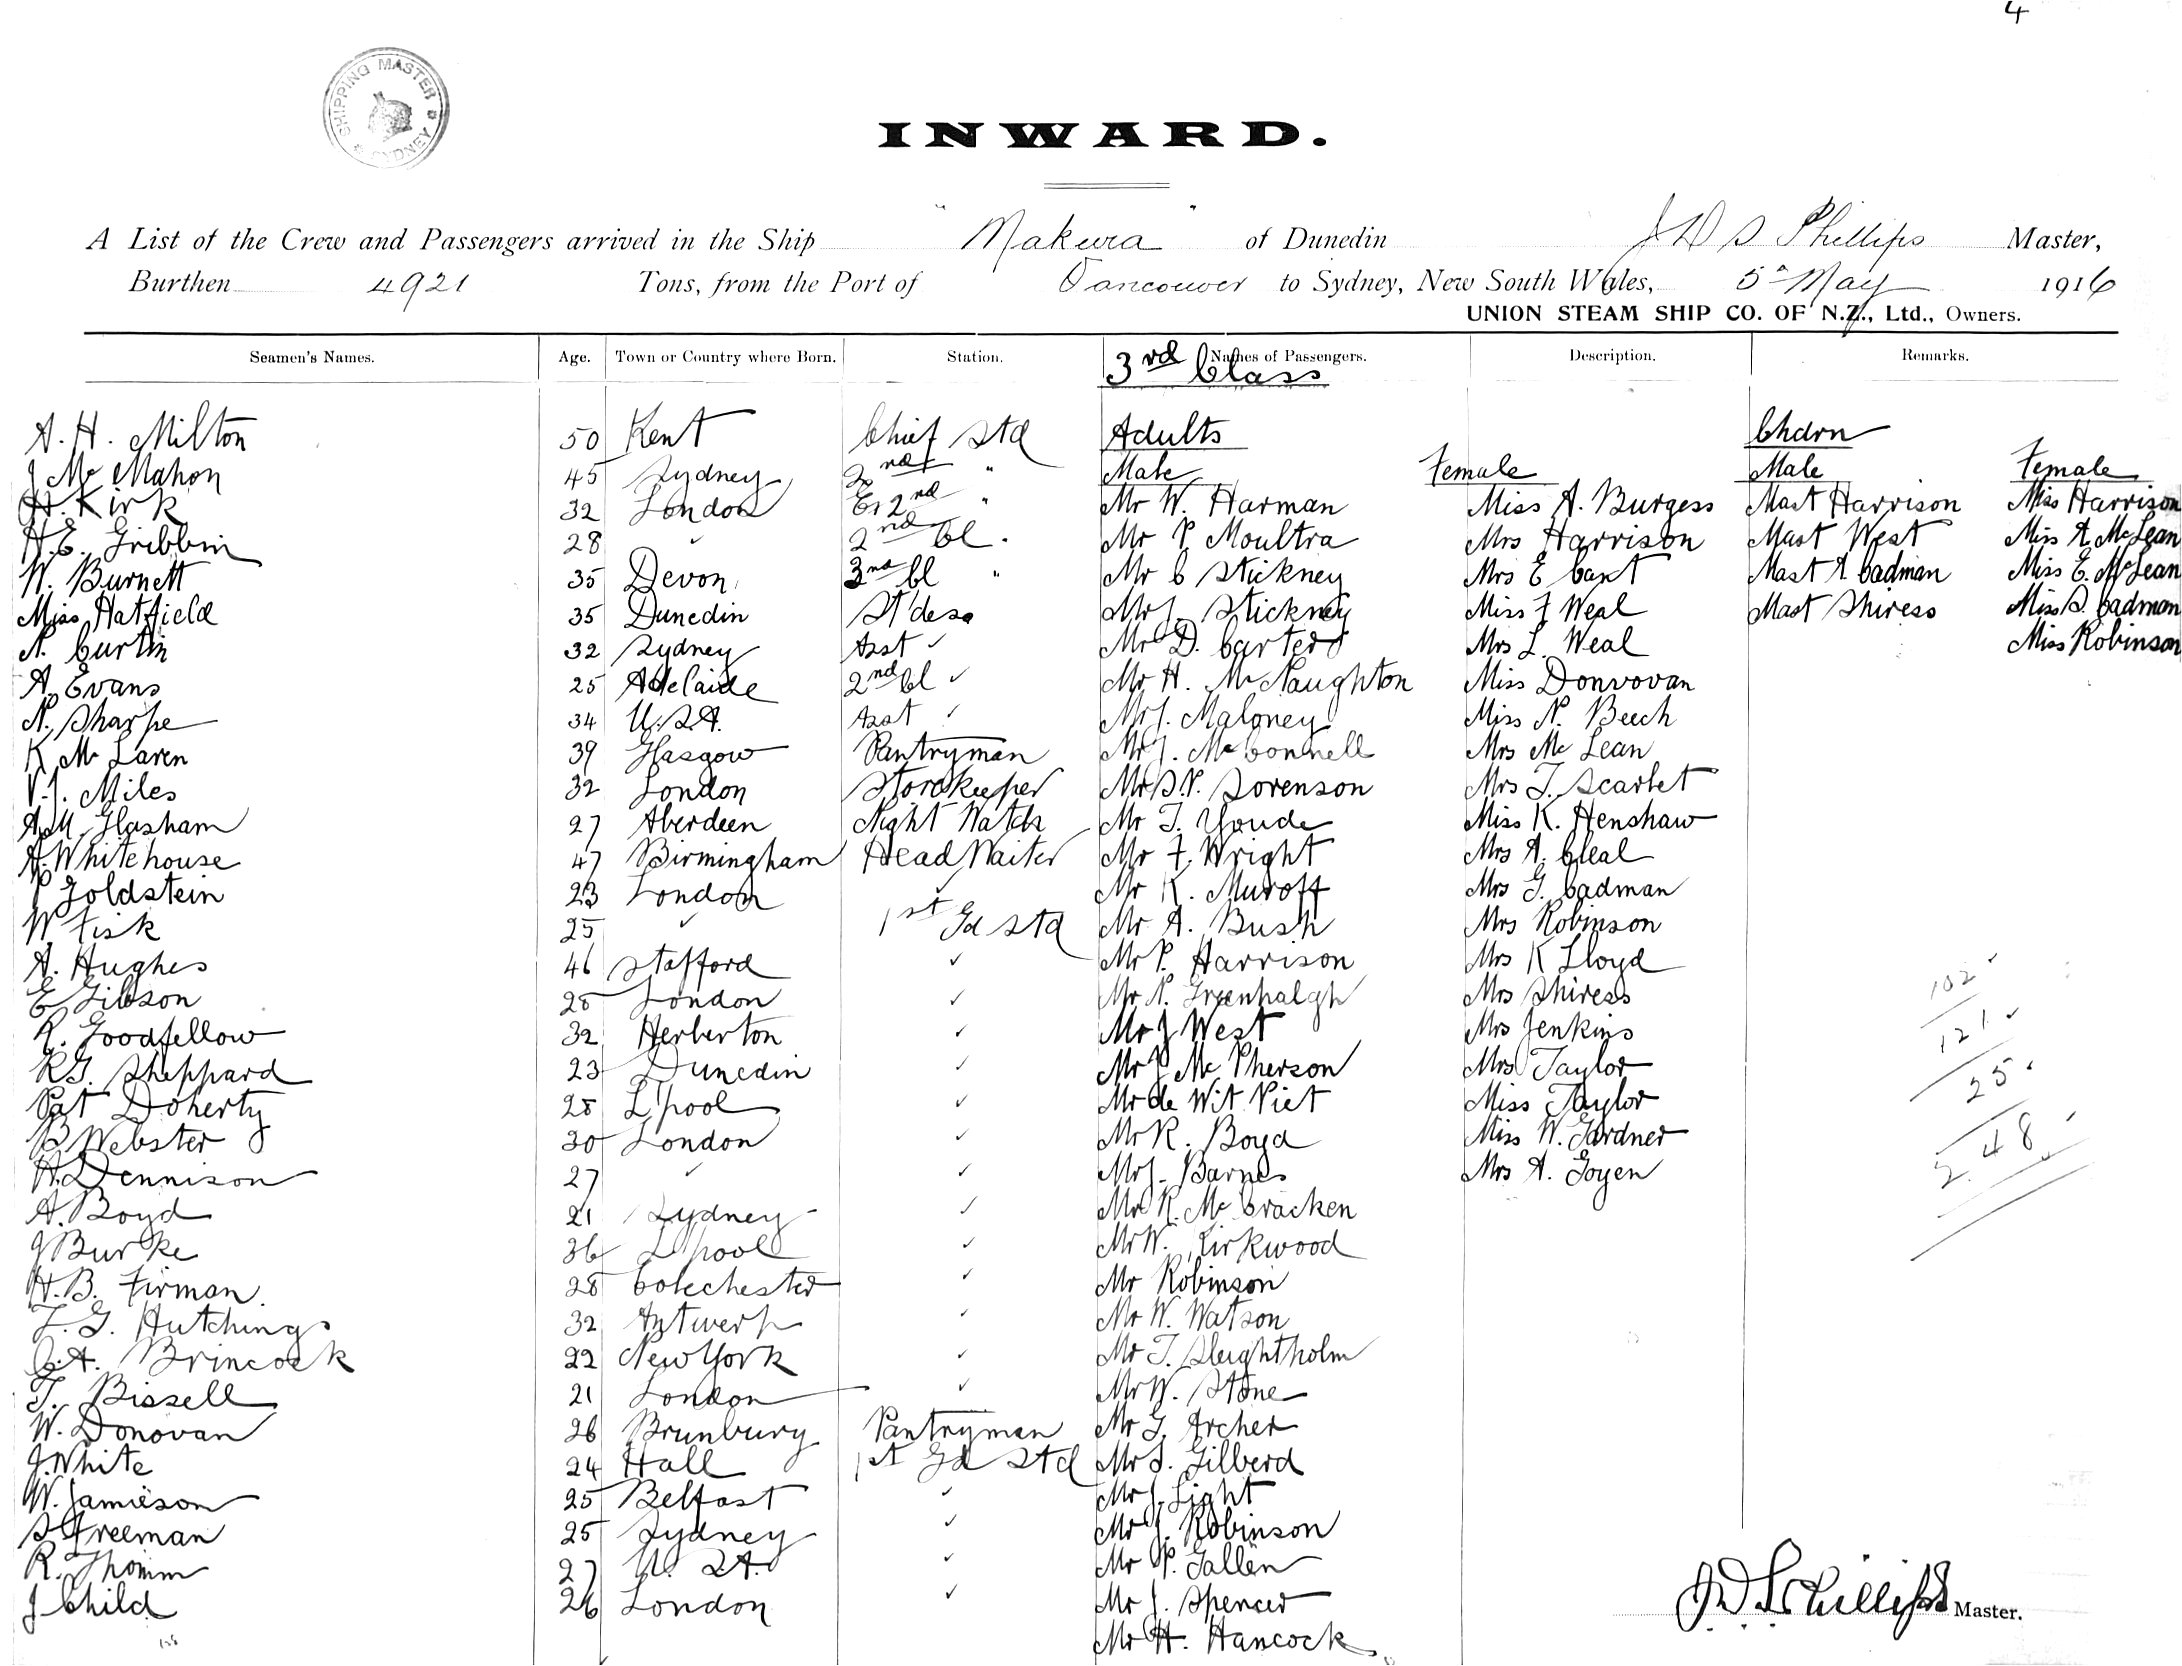 4
SHIPPING MASTER SYDNEY
INWARD.
A List of the Crew and Passengers arrived in the Ship "Makura" of Dunedin J D S Phillips Master,
Burthen 4921 Tons, from the Port of Vancouver to Sydney, New South Wales, 5th May 1916
UNION STEAM SHIP CO. OF N.Z., Ltd., Owners.
Seamen's Names. Age. Town or Country where Born. Station. Names of Passengers. Description. Remarks.
3rd Class
A. H. Milton 50 Kent Chief Std Adults Chdrn
J Mc Mahon 45 Sydney 2nd " Male Female Male Female
H. Kirk 32 London 2nd " Mr W. Harman Miss A. Burgess Mast Harrison Miss Harrison
H.E. Gribbin 28 ✓ 2nd Cl. Mr P. Moultra Mrs Harrison Mast West Miss A McLean
W. Burnett 35 Devon 3rd Cl " Mr C Stickney Mrs E Cant Mast A Cadman Miss E. McLean
Miss Hatfield 35 Dunedin St'dess Mr J. Stickney Miss J Weal Mast Shiress Miss D. Cadman
N. Curtin 32 Sydney Asst ✓ Mr D. Carter Mrs L. Weal Miss Robinson
A. Evans 25 Adelaide 2nd Cl ✓ Mr H. McNaughton Miss Donvovan
N. Sharpe 34 U.S.A. Asst ✓ Mr J. Maloney Miss N. Beech
K Mc Laren 39 Glasgow Pantryman Mr J. McConnell Mrs Mc Lean
V.J. Miles 32 London Storekeeper Mr S.P. Sorenson Mrs J. Scarlet
A.M. Glasham 27 Aberdeen Night Watch Mr J. Youde Miss K. Henshaw
A. Whitehouse 47 Birmingham Head Waiter Mr F. Wright Mrs A. Cleal
P Goldstein 23 London ✓ Mr K. Muroff Mrs G. Cadman
W Fisk 25 ✓ 1st Gd Std Mr A. Bush Mrs Robinson
A. Hughes 46 Stafford ✓ Mr P. Harrison Mrs K Lloyd
E Gibson 28 London ✓ Mr N. Greenhalgh Mrs Shiress 102
R. Goodfellow 32 Herberton ✓ Mr J West Mrs Jenkins 121
R.G. Sheppard 23 Dunedin ✓ Mr J Mc Pherson Mrs Taylor 25
Pat Doherty 28 L'pool ✓ Mr de Wit Piet Miss Taylor
B Webster 30 London ✓ Mr R. Boyd Miss W. Gardner 248
H. Dennison 27 ✓ ✓ Mr J. Barnes Mrs A. Goyen
A. Boyd 21 Sydney ✓ Mr R. McCracken
J Burke 36 L'pool ✓ Mr W. Kirkwood
H.B. Firman 28 Colechester ✓ Mr Robinson
F. G. Hutchings 32 Antwerp ✓ Mr W. Watson
A. Brincock 22 New York ✓ Mr J. Sleightholm
T. Bissell 21 London ✓ Mr W. Stone
W. Donovan 26 Brunbury Pantryman Mr G. Archer
J. White 24 Hall 1st Gd Std Mr S. Gilberd
W. Jamieson 25 Belfast ✓ Mr J. Light
S Freeman 25 Sydney ✓ Mr J. Robinson
R. Thomm 27 U.S.A. ✓ Mr P. Gallen
J Child 26 London ✓ Mr J. Spencer
Mr H. Hancock
J D S Phillips Master.